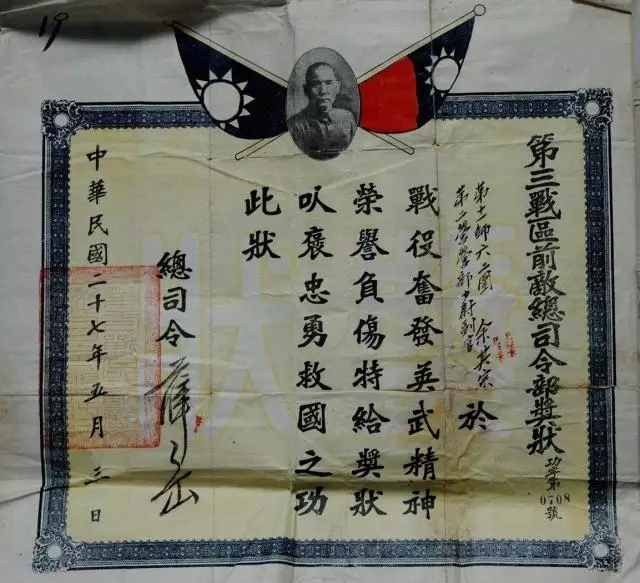 19
第三戰區前敵總司令部獎狀
功字第0708號
第十一師六二團
第二營營部少尉副官 余其宗 於
戰役奮發英武精神
榮譽負傷特給獎狀
以褒忠勇救國之功
此狀
總司令 薛岳
中華民國二十七年五月三日
獎狀